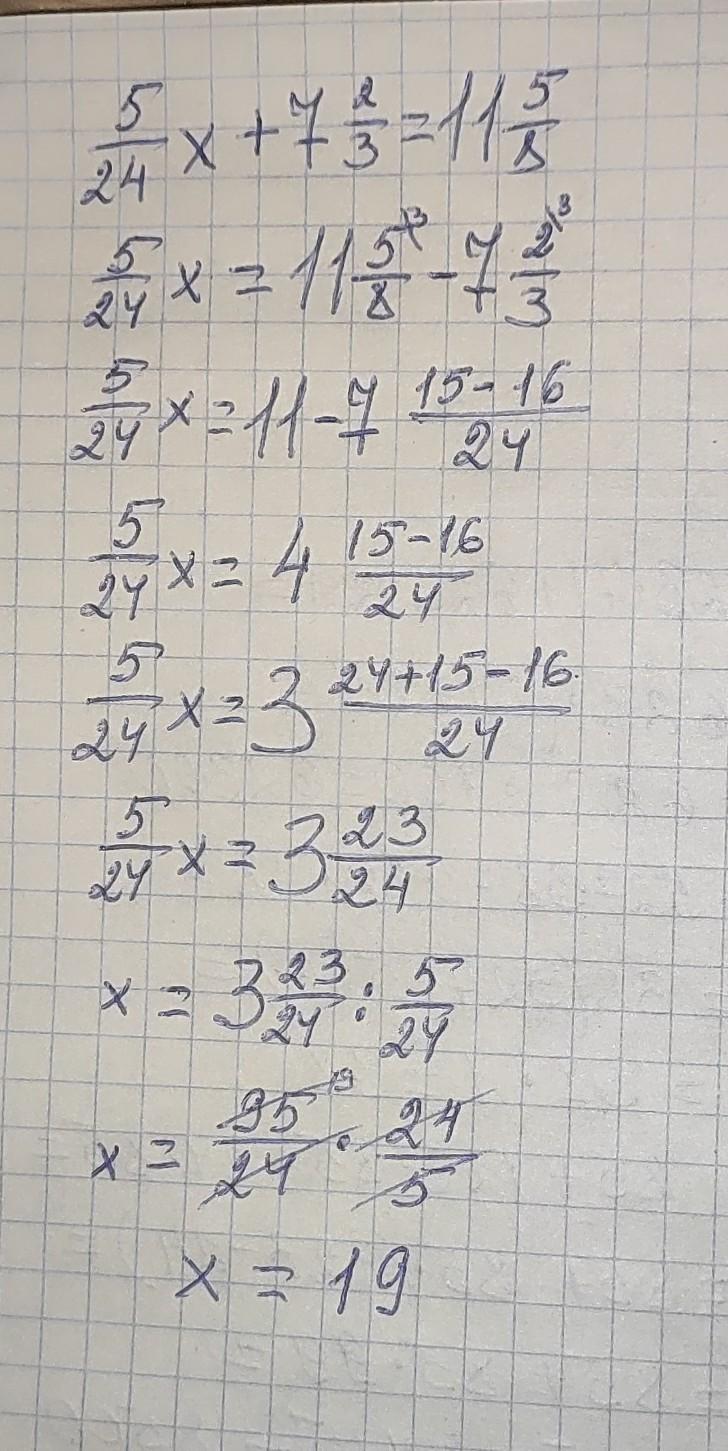 5/24 x + 7 2/3 = 11 5/8
5/24 x = 11 5\3/8 - 7 2\3/3
5/24 x = 11 - 7 15-16/24
5/24 x = 4 15-16/24
5/24 x = 3 24+15-16/24
5/24 x = 3 23/24
x = 3 23/24 : 5/24
x = 95 19/24 · 24/5
x = 19